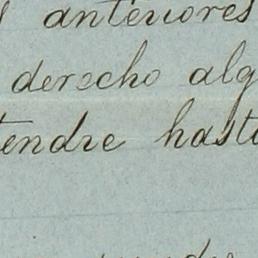 anteriores
derecho alg
tendre hasta